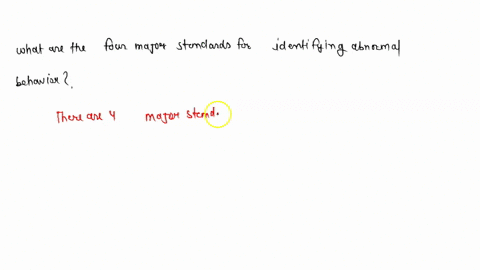 what are the four major standards for identifying abnormal
behavior?
There are 4 major stand.